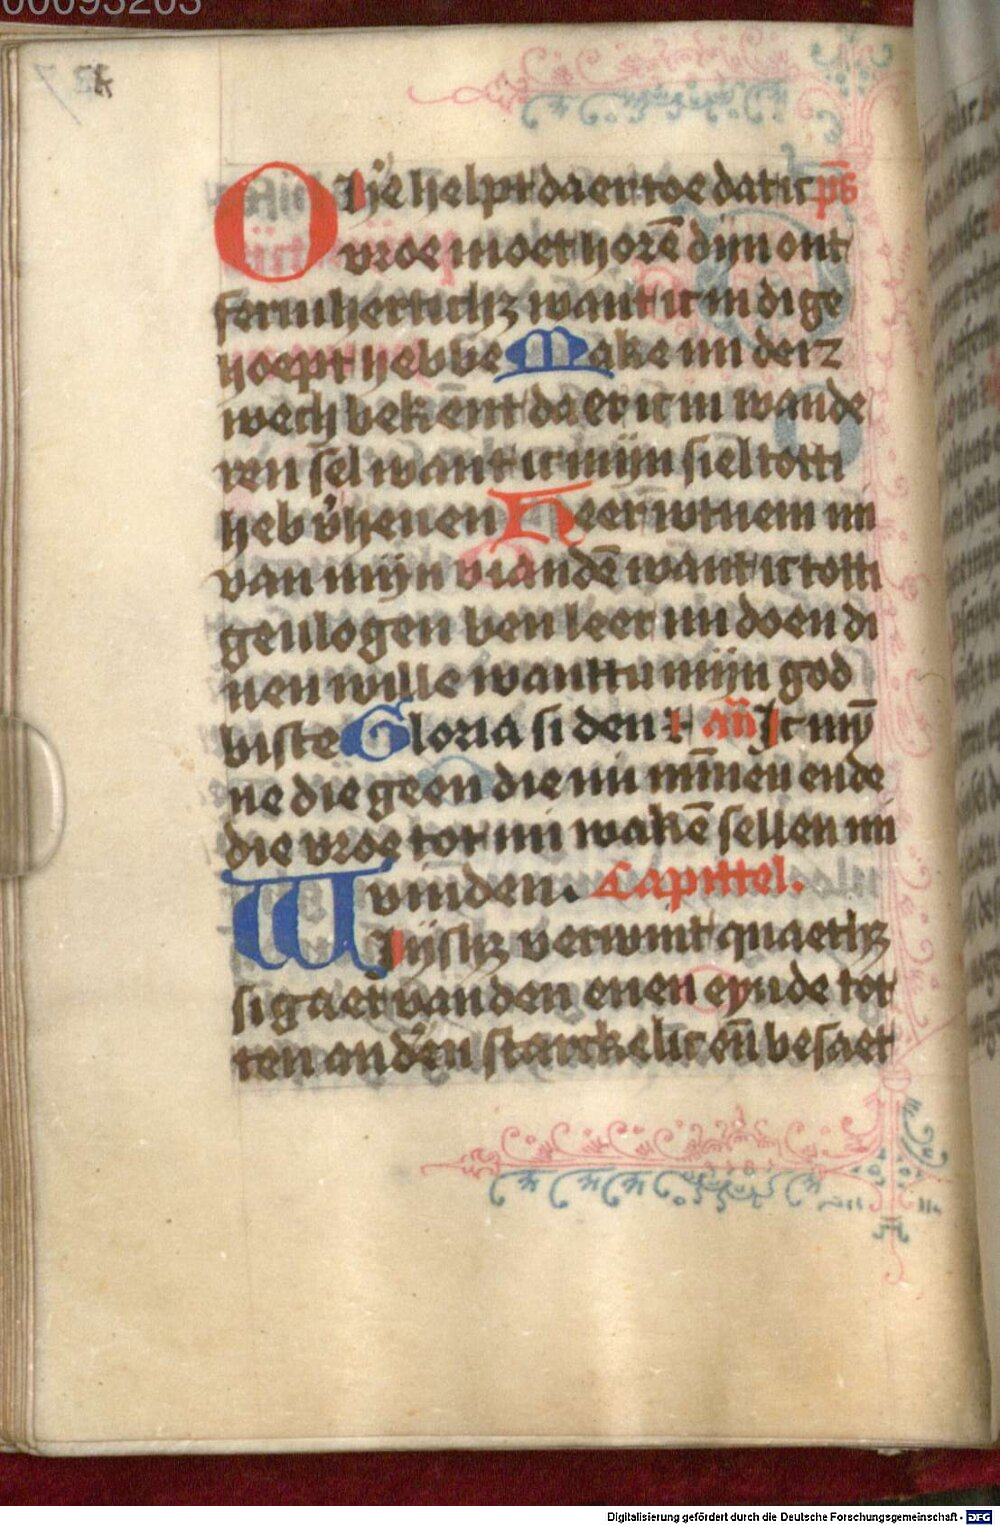 00093203
O Jhē helpt daer toe dat ic ps̄
vroe moet horē dijn ont
fermherticħz want ic in di ge
hoept hebbe Make mi der
wech bekēnt daer ic in wande
ren sel want ic mijn siel totti
heb v̉heuen Heer wtnem mi
van mijn viandē want ic totti
geulogen ben leer mi doen di
nen wille wanttu mijn god
biste Gloria si den ⁊ an̄ Jc mȳ
ne die geen die mi mīnen ende
die vroe tot mi wakē sellen mi
vinden. Capittel.
Wijsħz verwint quaetħz
si gaet vanden enen eynde tot
ten and̉en starckelic en̄ besaet
Digitalisierung gefördert durch die Deutsche Forschungsgemeinschaft - DFG